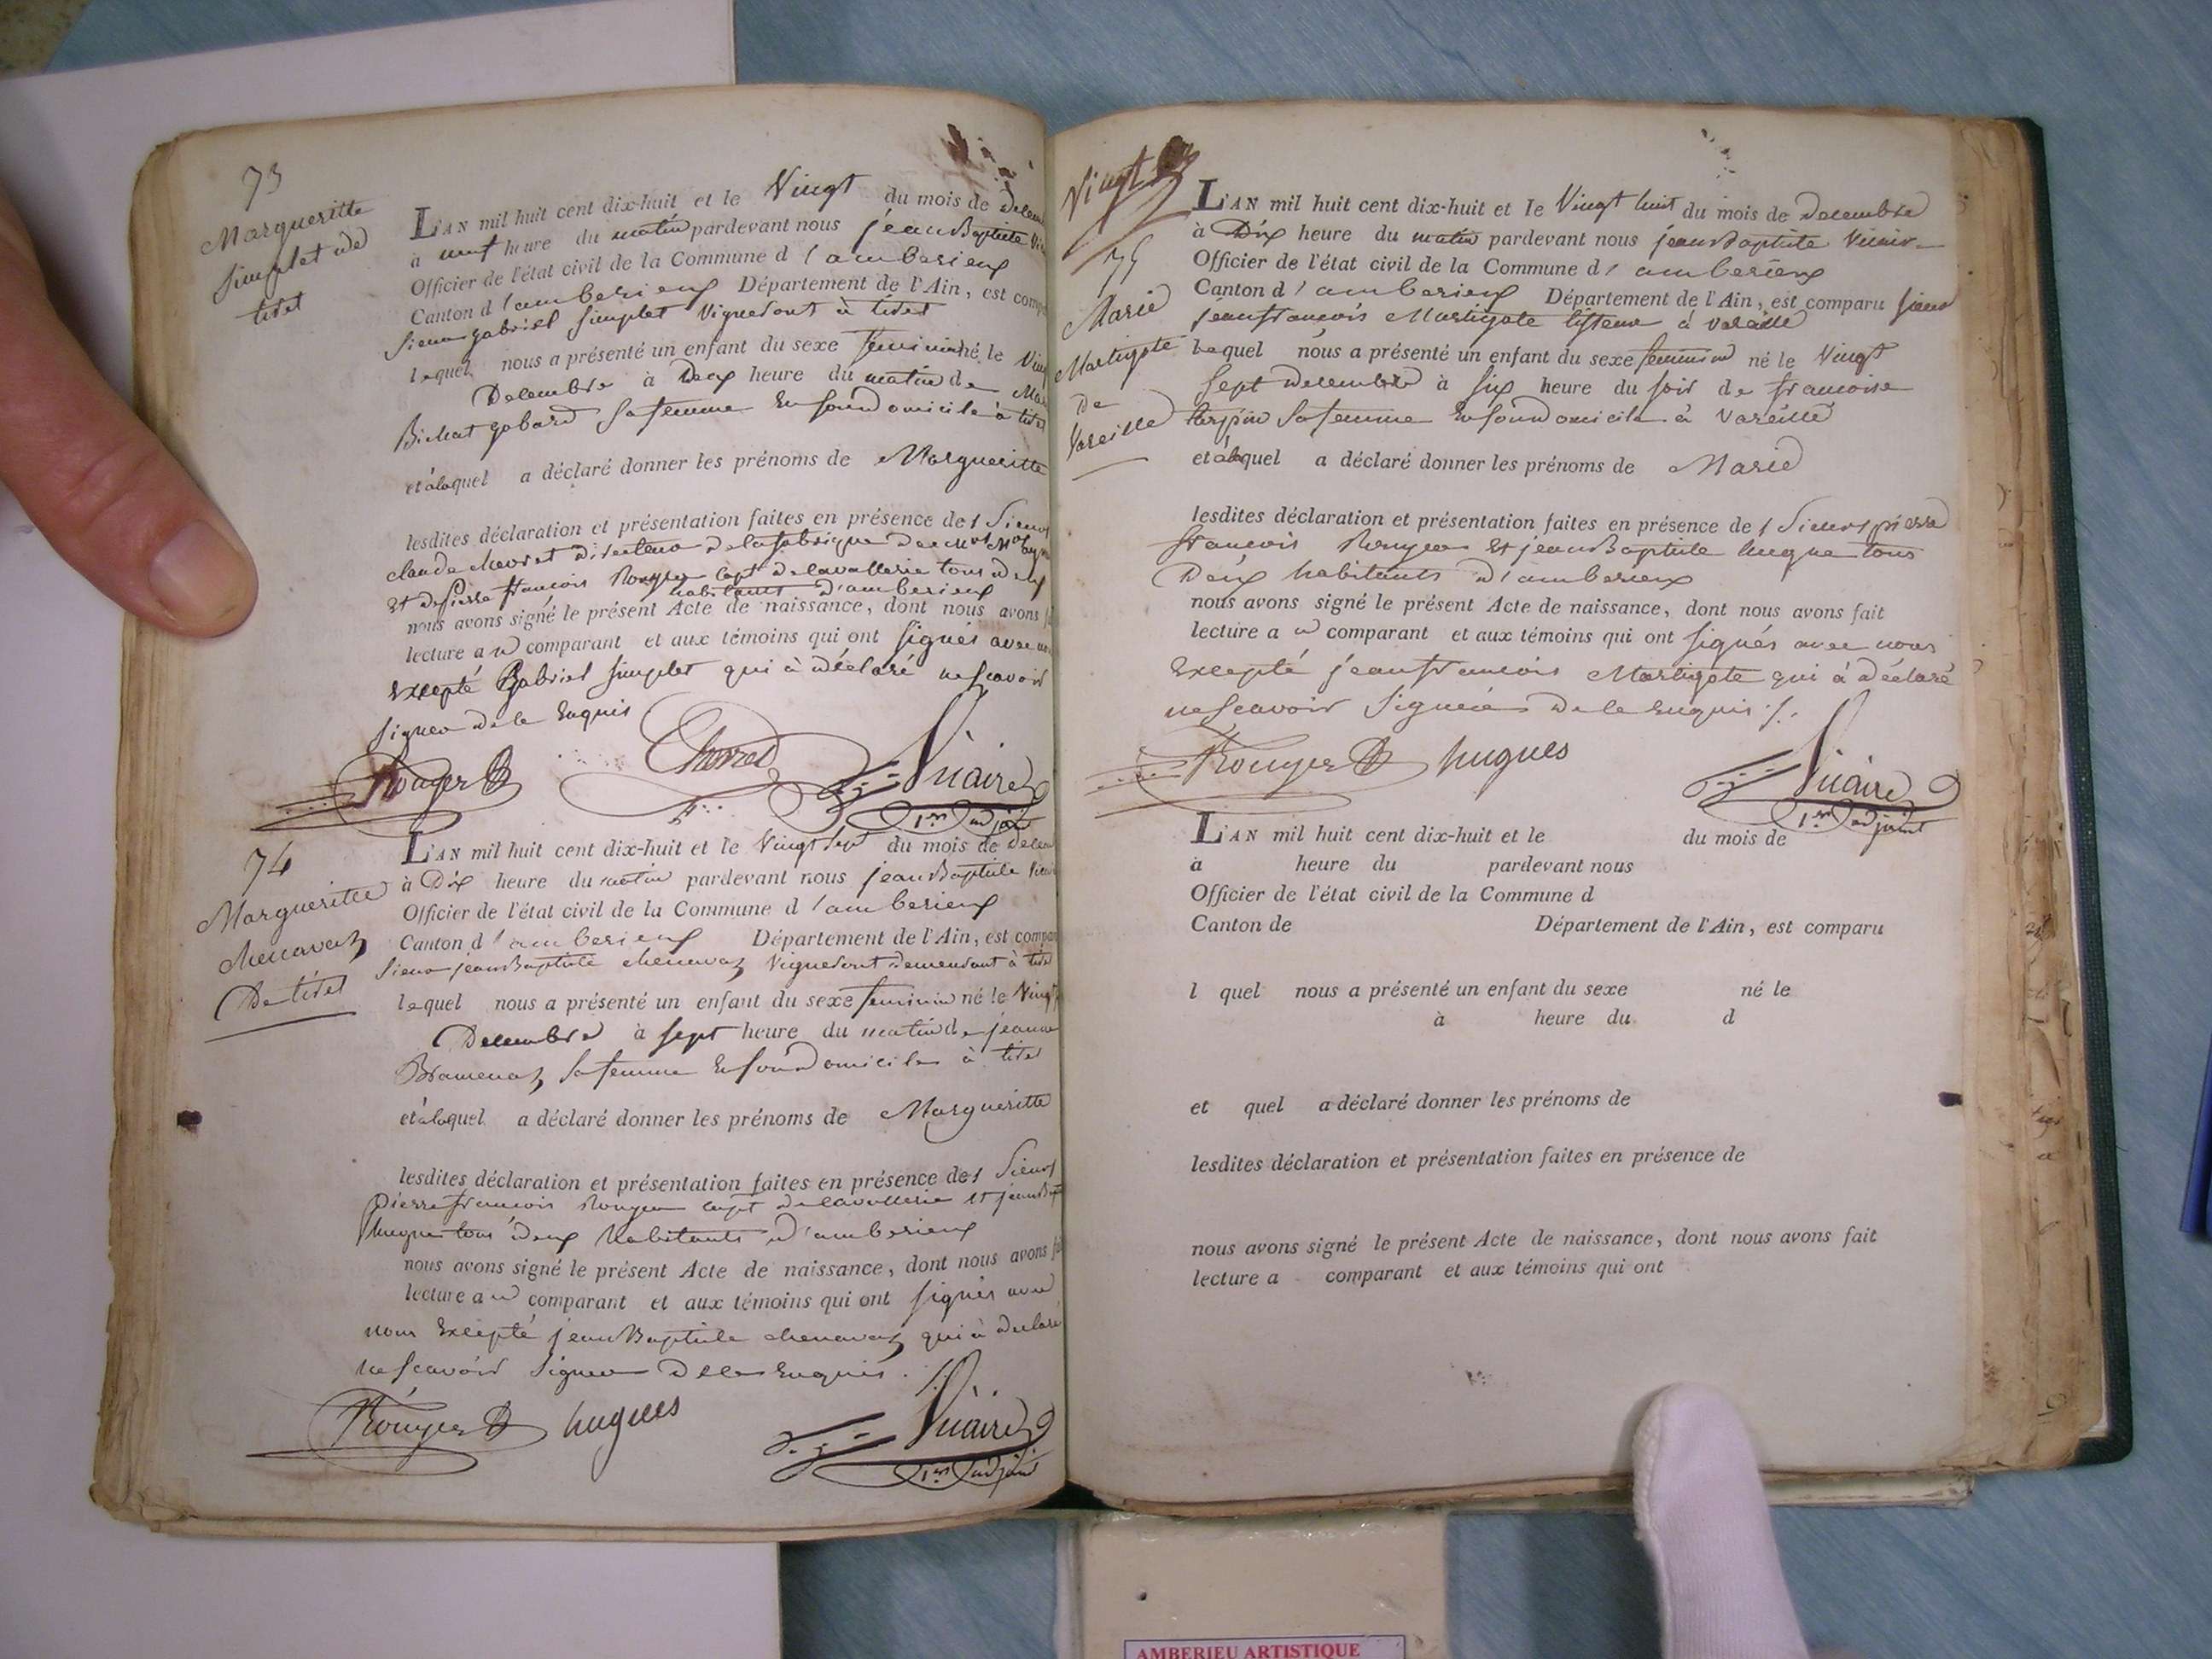 73
Margueritte
simplet de
tiret
L'AN mil huit cent dix-huit et le Vingt du mois de
à neuf heure du matin pardevant nous jean Baptiste
Officier de l'état civil de la Commune d'amberieux
Canton d'amberieux Département de l'Ain, est
Sieur gabriel simplet Vigneront à tiret
lequel nous a présenté un enfant du sexe feminin né le
Decembre à Deux heure du matin de
Bichat gobard sa femme En son Domicile à tiret
et à laquel a déclaré donner les prénoms de Margueritte
lesdites déclaration et présentation faites en présence des Sieurs
claude chevret Directeur de la fabrique de
Et de pierre francois Rouyer capt de cavallerie tous deux
habitants d'amberieux
nous avons signé le présent Acte de naissance, dont nous avons
lecture au comparant et aux témoins qui ont signés avec
Excepté Gabriel simplet qui à déclaré ne scavoir
signer de le Enquis
Rouyer Vicaire
1er adjoint
74
Margueritte
chenavaz
De tiret
L'AN mil huit cent dix-huit et le Vingt sept du mois de
à Dix heure du matin pardevant nous jean Baptiste
Officier de l'état civil de la Commune d'amberieux
Canton d'amberieux Département de l'Ain, est
Sieur jean Baptiste chenavaz Vigneront demeurant à tiret
lequel nous a présenté un enfant du sexe feminin né le
Decembre à sept heure du matin de jeanne
Bramenaz sa femme En son Domicile à tiret
et à laquel a déclaré donner les prénoms de Margueritte
lesdites déclaration et présentation faites en présence des Sieurs
Pierre francois Rouyer capt de cavallerie et jean
hugue tous deux habitants d'amberieux
nous avons signé le présent Acte de naissance, dont nous avons
lecture au comparant et aux témoins qui ont signés avec
nous Excepté jean Baptiste chenavaz qui à declaré
ne scavoir signer De le Enquis.
Rouyer hugues Vicaire
1er adjoint
Vingt
75
Marie
Martigote
De
Vareille
L'AN mil huit cent dix-huit et le Vingt huit du mois de Decembre
à Dix heure du matin pardevant nous jean Baptiste Vicaire
Officier de l'état civil de la Commune d'amberieux
Canton d'amberieux Département de l'Ain, est comparu sieur
jean francois Martigote à Vareille
lequel nous a présenté un enfant du sexe feminin né le Vingt
sept decembre à six heure du soir de francoise
sa femme En son Domicile à Vareille
et à laquel a déclaré donner les prénoms de Marie
lesdites déclaration et présentation faites en présence des Sieurs pierre
francois Rouyer Et jean Baptiste hugue tous
Deux habitants d'amberieux
nous avons signé le présent Acte de naissance, dont nous avons fait
lecture au comparant et aux témoins qui ont signés avec nous
Excepté jean francois Martigote qui à déclaré
ne scavoir Signer De le Enquis
Rouyer hugues Vicaire
1er adjoint
L'AN mil huit cent dix-huit et le du mois de
à heure du pardevant nous
Officier de l'état civil de la Commune d
Canton de Département de l'Ain, est comparu
l quel nous a présenté un enfant du sexe né le
à heure du d
et quel a déclaré donner les prénoms de
lesdites déclaration et présentation faites en présence de
nous avons signé le présent Acte de naissance, dont nous avons fait
lecture a comparant et aux témoins qui ont
AMBERIEU ARTISTIQUE